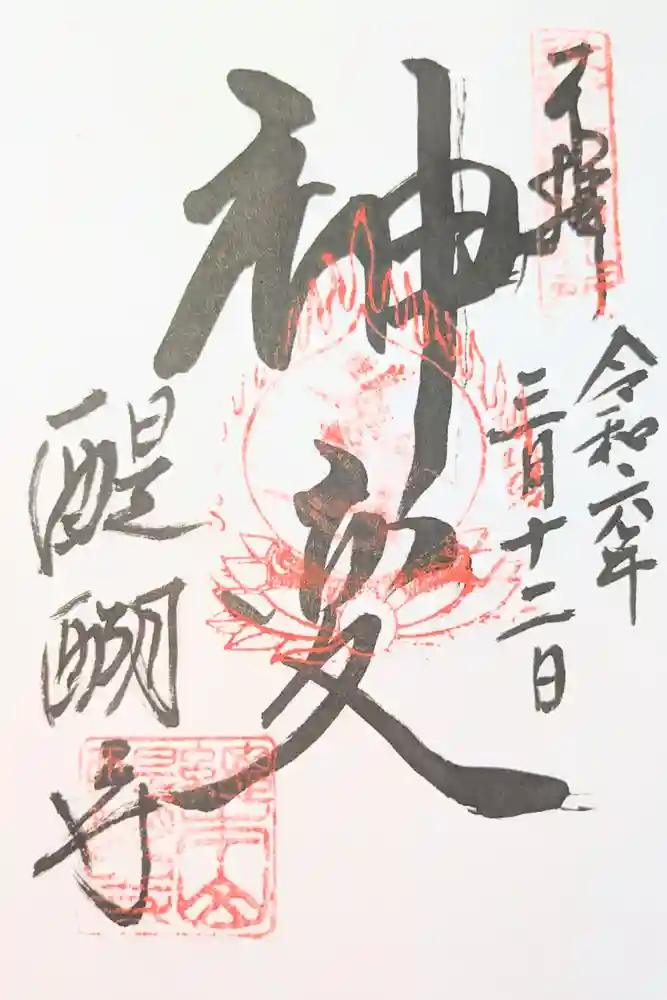 不拝
令和六年
三月十二日
神変
醍醐寺